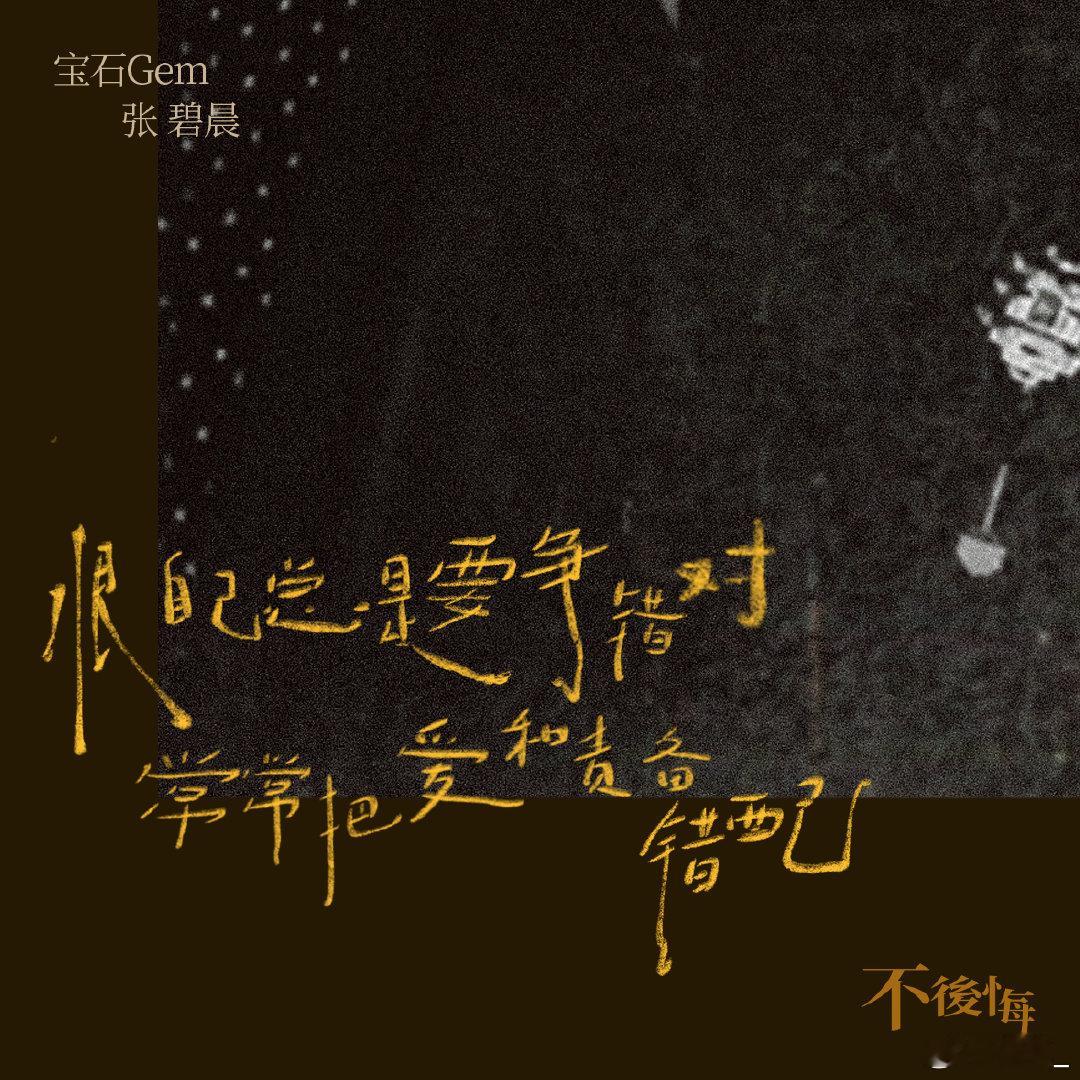 宝石Gem
张 碧晨
恨自己总是要争错对
常常把爱和责备
错配
不後悔